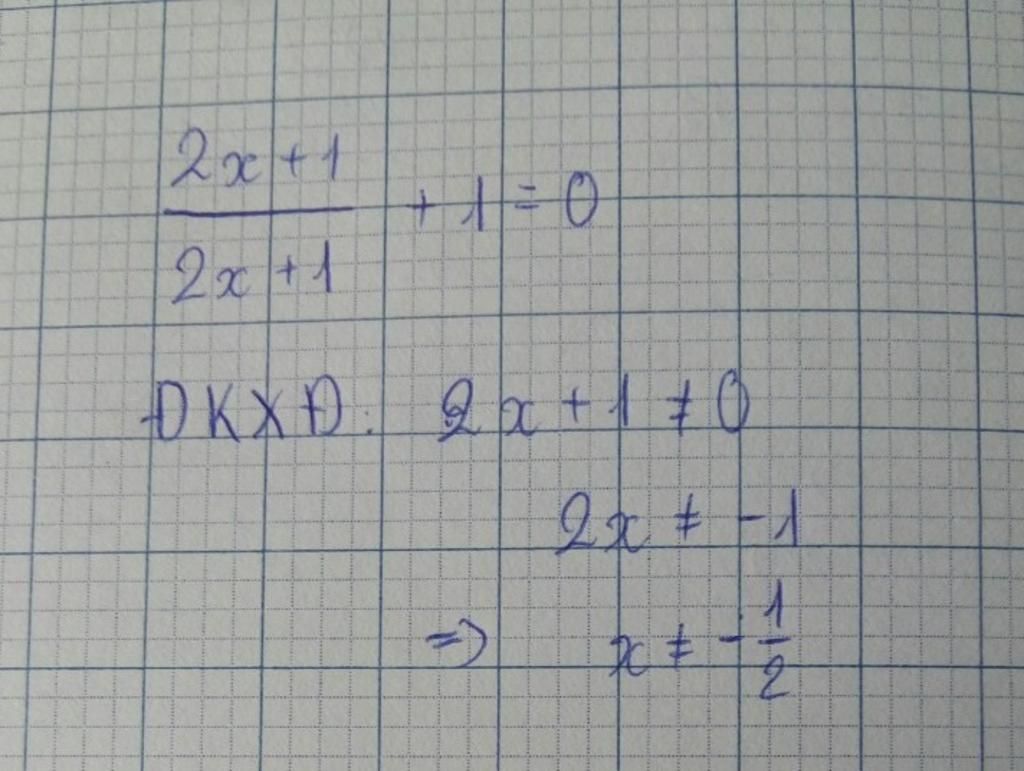 2x + 1
/ 2x + 1 + 1 = 0
ĐKXĐ: 2x + 1 ≠ 0
2x ≠ -1
=> x ≠ - 1/2